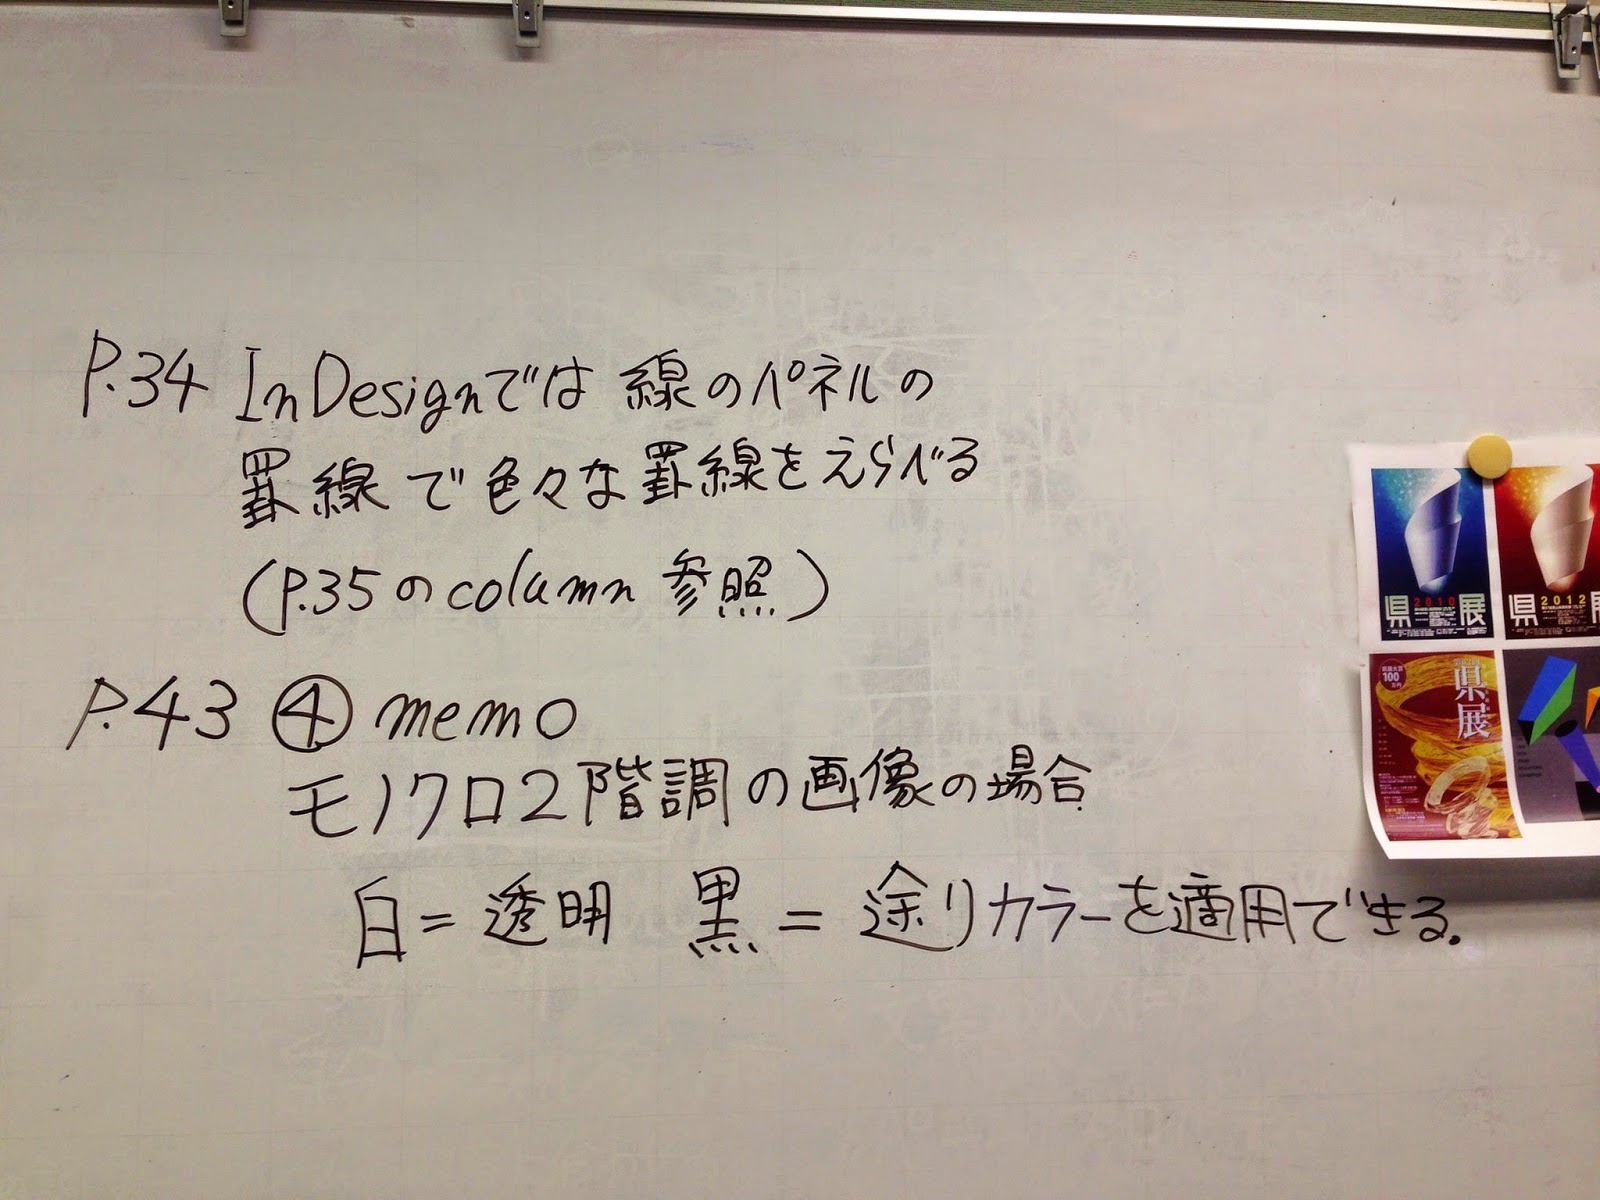 P.34 InDesignでは 線のパネルの
罫線で色々な罫線をえらべる
(P.35のcolumn 参照)
P.43 ④ memo
モノクロ2階調の画像の場合
白=透明 黒=塗りカラーを適用できる.
県 2010 展
県 2012 展
100
県展